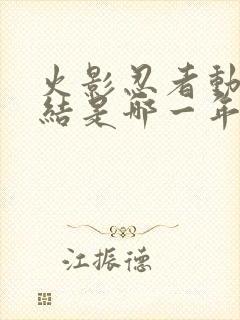 火影忍者動
結是哪一年
江振德